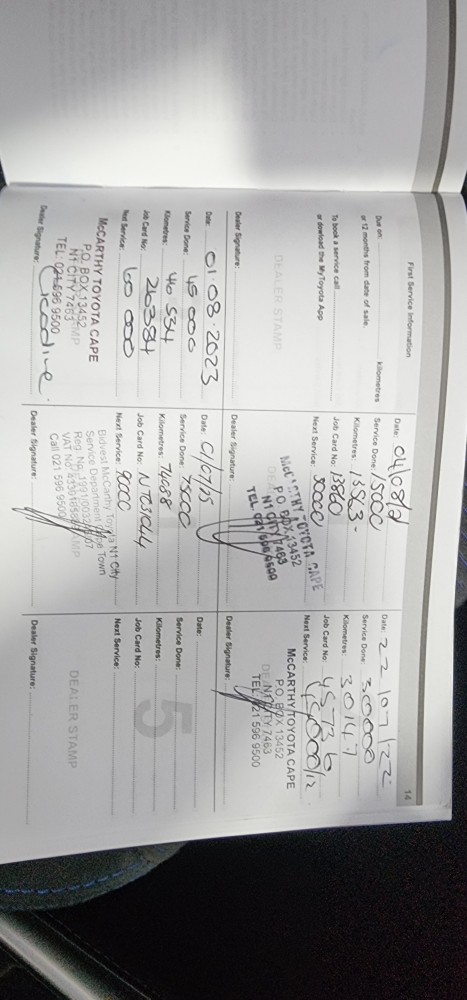 14
First Service Information
Due on: kilometres
or 12 months from date of sale.
To book a service call
or dowload the MyToyota App
DEALER STAMP
Dealer Signature:
Date:
Service Done: 15000
Kilometres:
Job Card No: 13860
Next Service: 30000
McCARTHY TOYOTA CAPE
P.O. BOX 13452
N1 CITY 7463
TEL. 021 596 9500
Dealer Signature:
Date: 22/07/22
Service Done: 30000
Kilometres: 30147
Job Card No: 45736
Next Service:
McCARTHY TOYOTA CAPE
P.O. BOX 13452
N1 CITY 7463
TEL: 021 596 9500
Dealer Signature:
Date: 01.08.2023
Service Done: 45000
Kilometres: 46 534
Job Card No: 263584
Next Service: 60 000
McCARTHY TOYOTA CAPE
P.O. BOX 13452
N1 CITY 7463
TEL: 021 596 9500
Dealer Signature:
Date: 01/07/25
Service Done: 75000
Kilometres: 74688
Job Card No:
Next Service: 90000
Bidvest McCarthy Toyota N1 City
Service Department Cape Town
Call 021 596 9500
Dealer Signature:
5
Date:
Service Done:
Kilometres:
Job Card No:
Next Service:
DEALER STAMP
Dealer Signature: